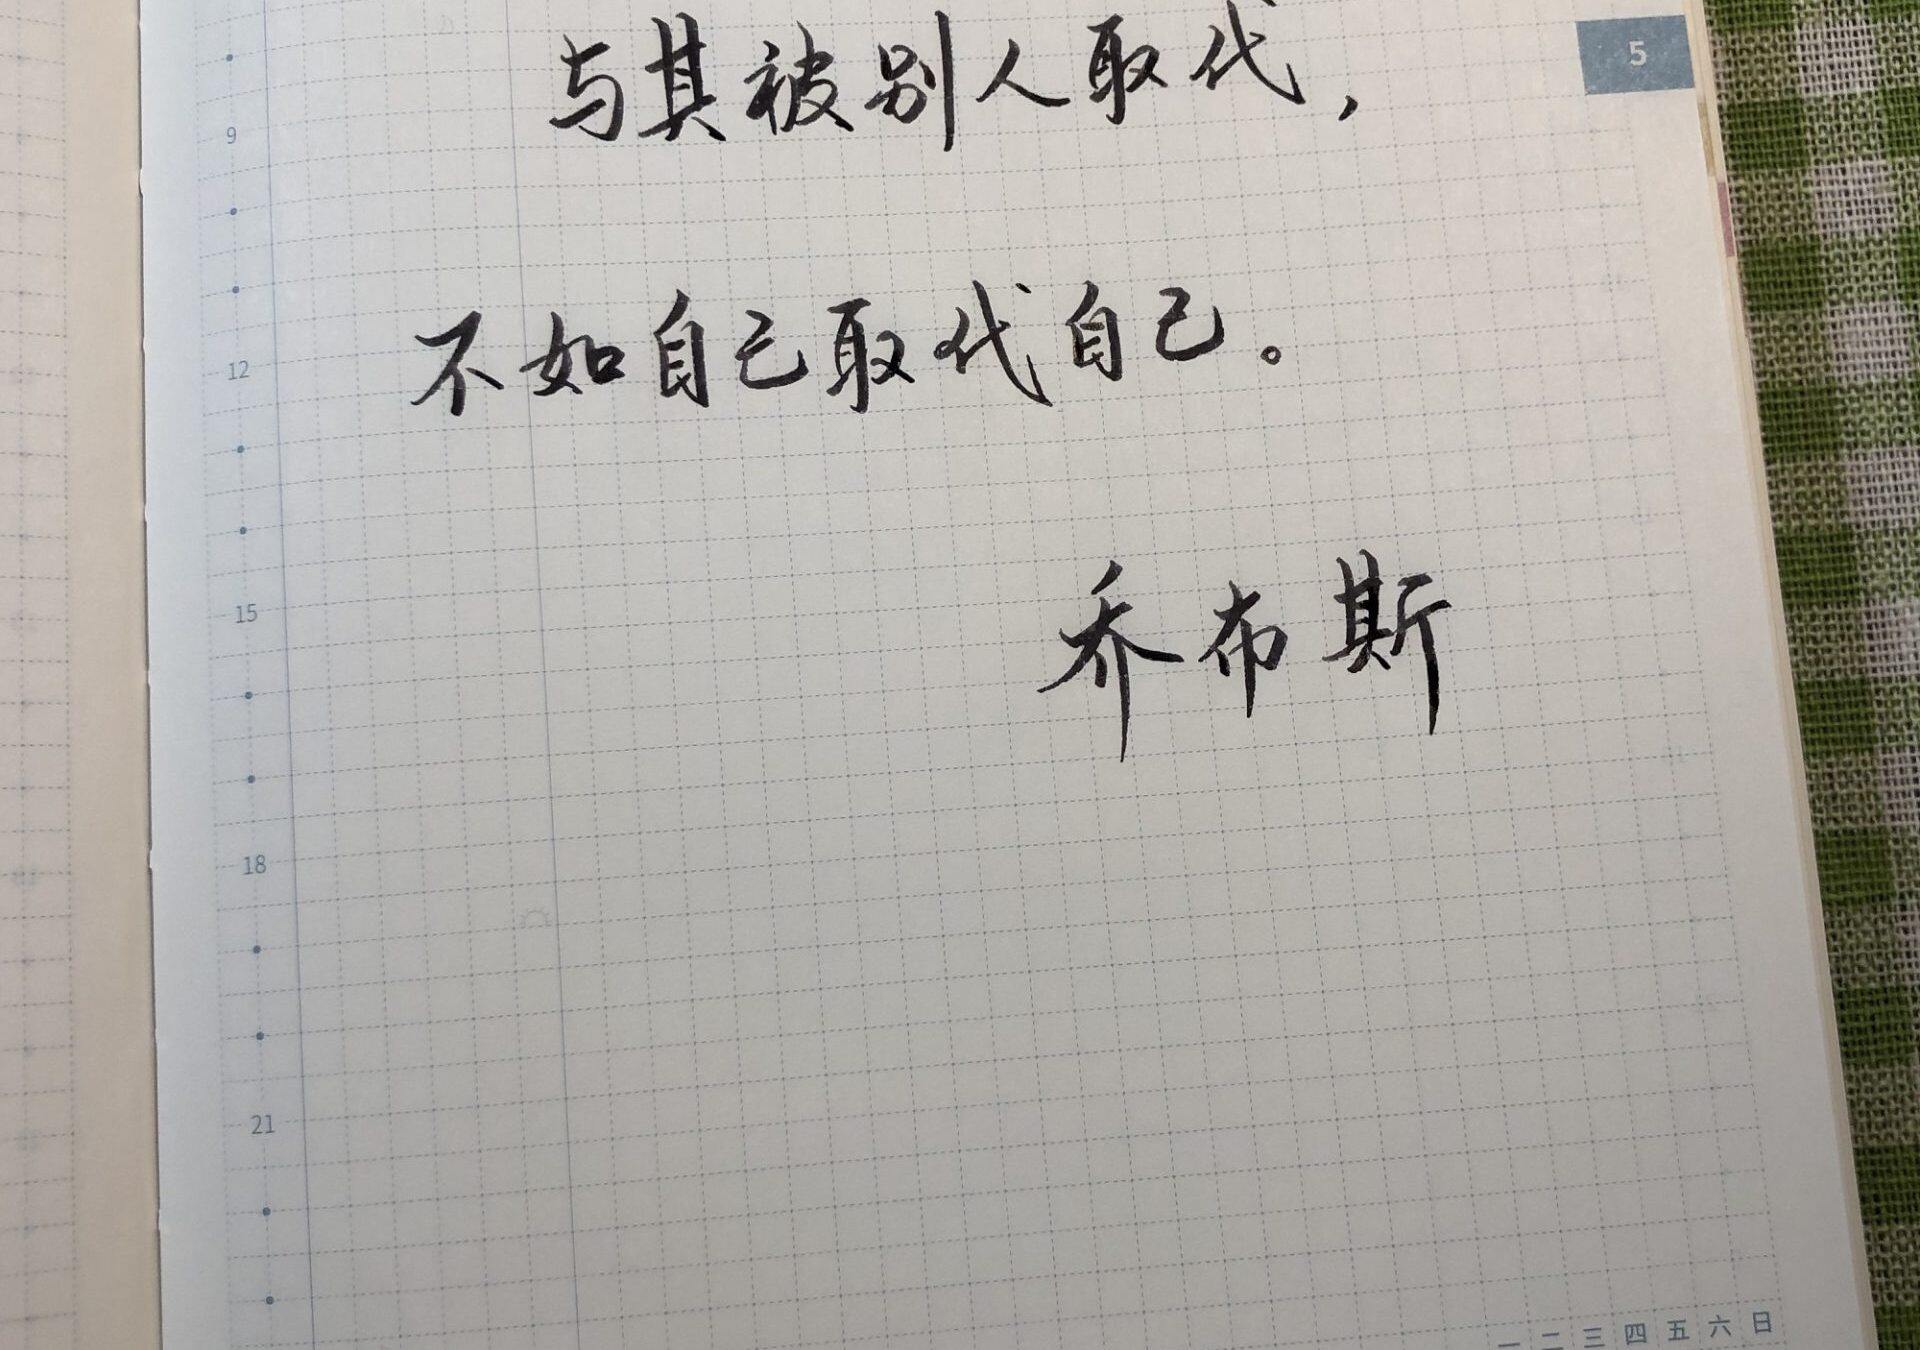 与其被别人取代，
5
9
不如自己取代自己。
12
乔布斯
15
18
21
一 二 三 四 五 六 日